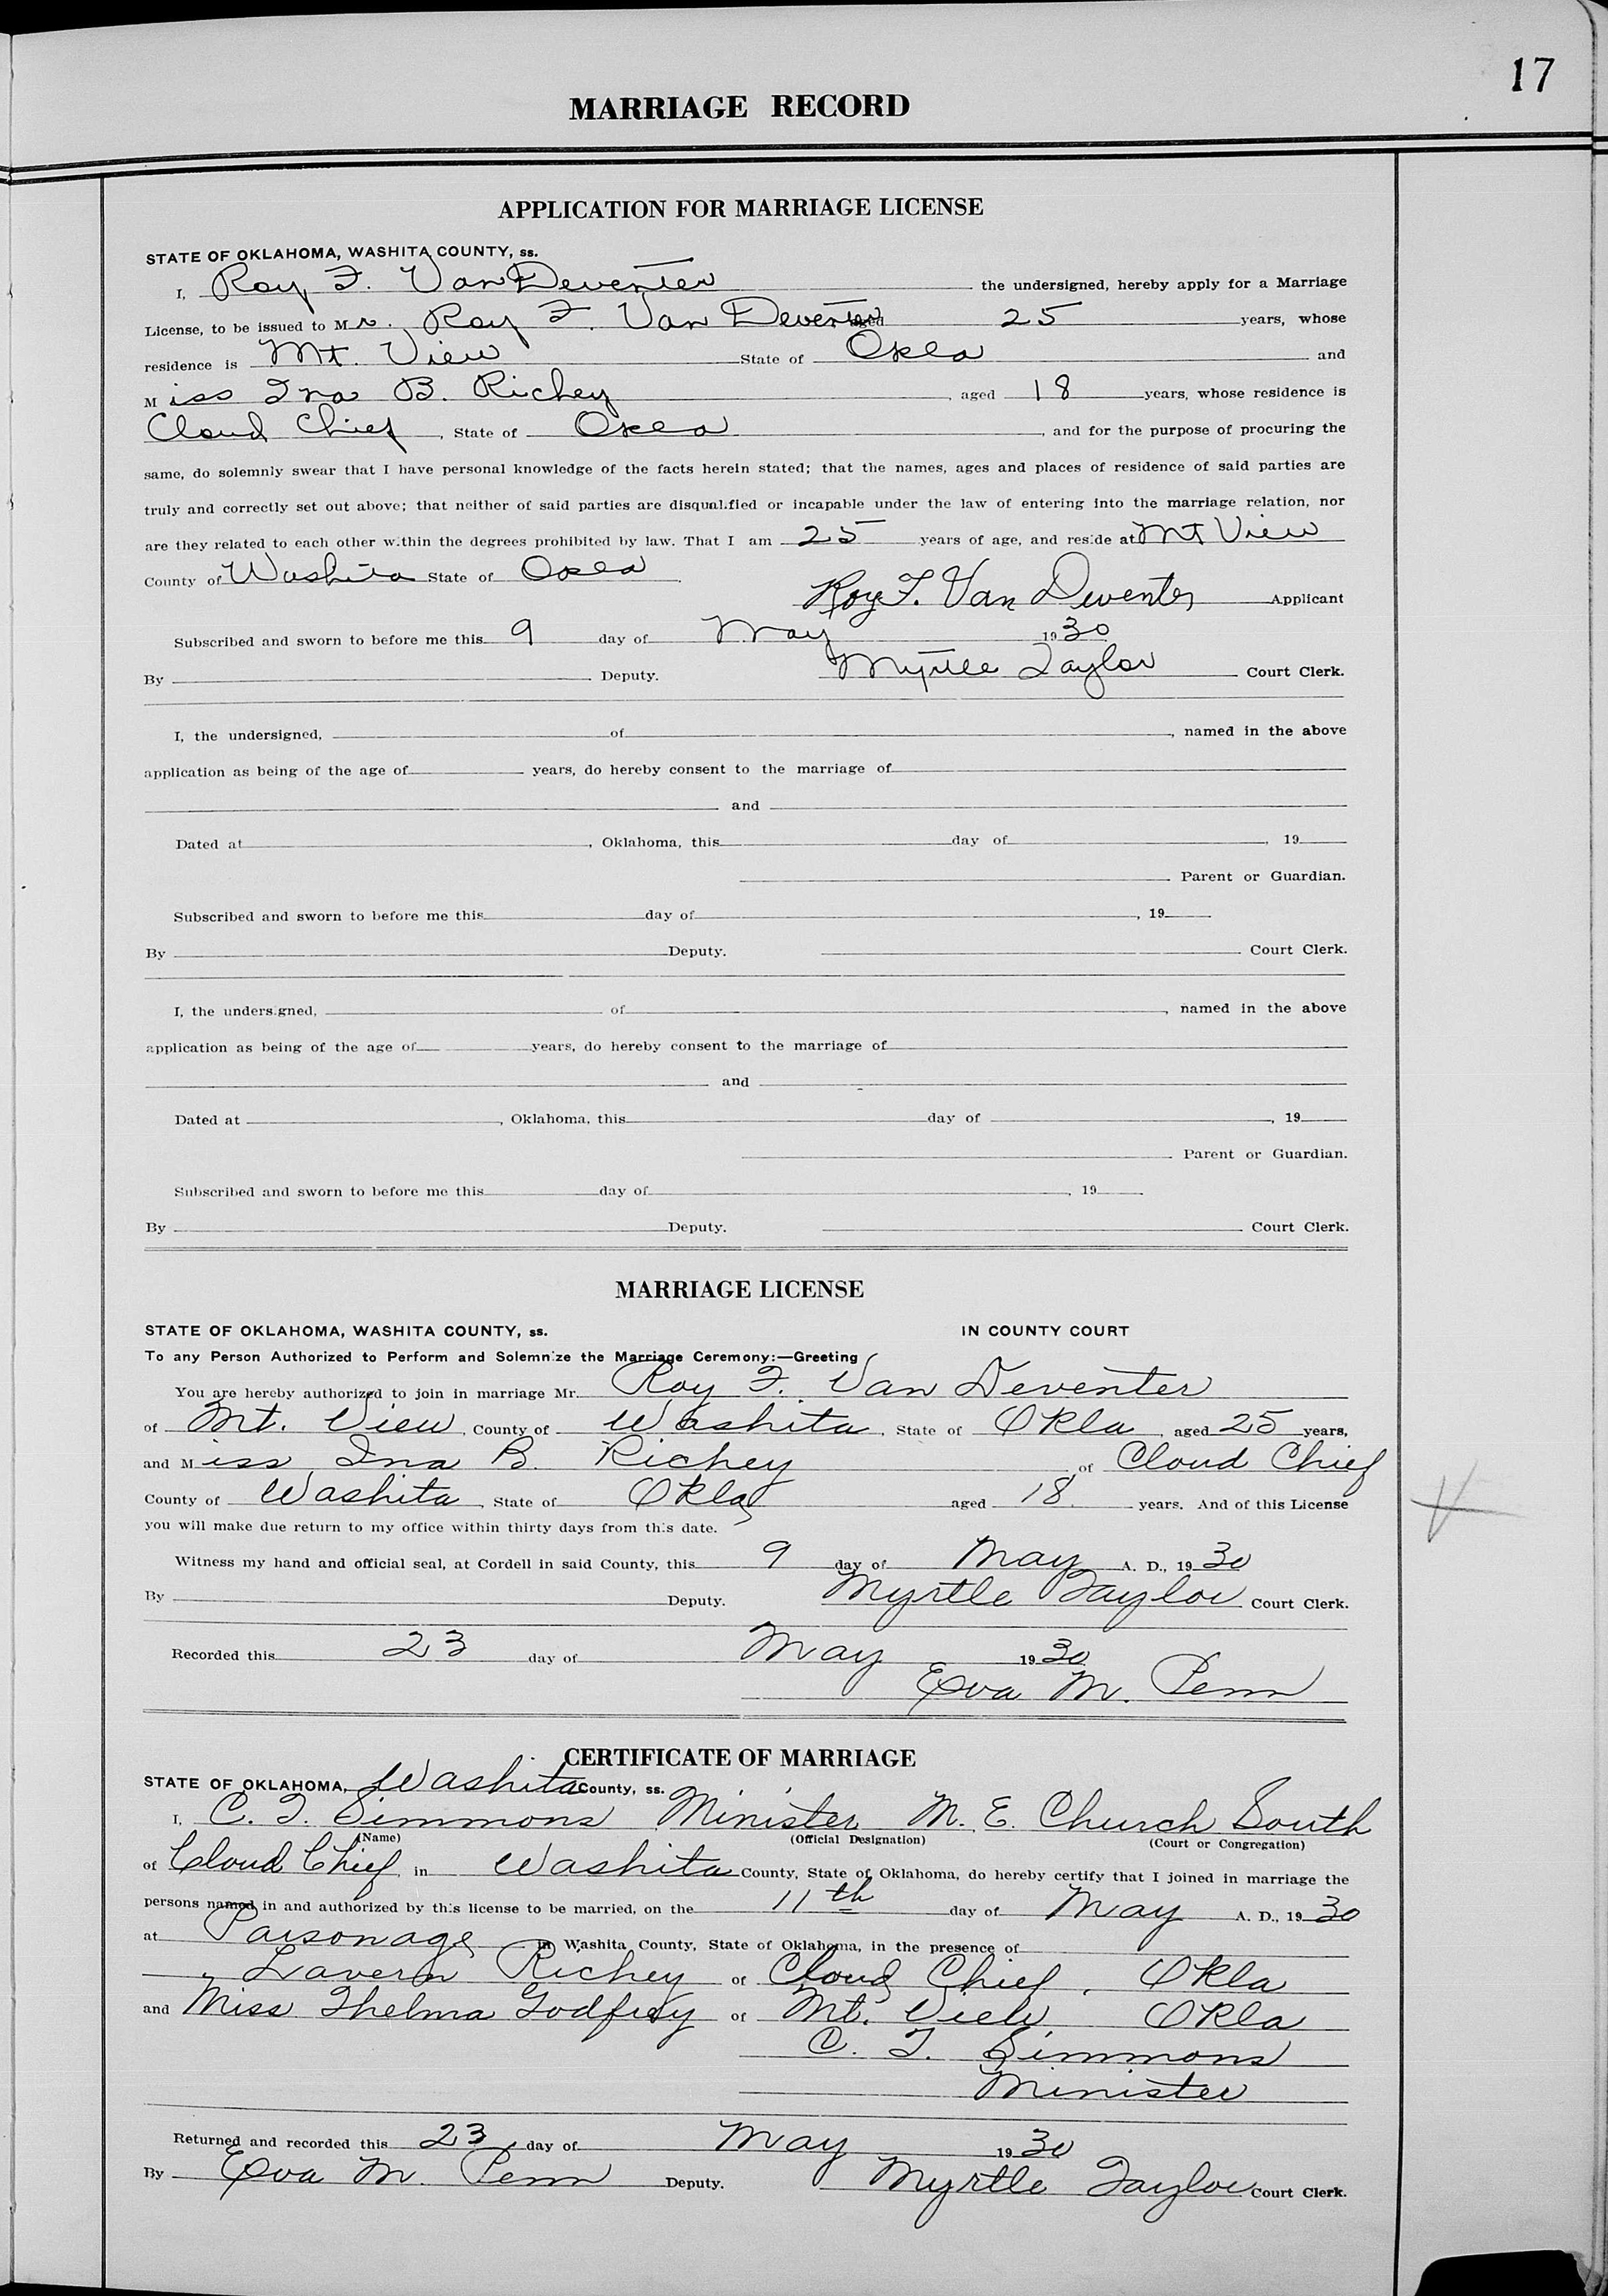 17
MARRIAGE RECORD
APPLICATION FOR MARRIAGE LICENSE
STATE OF OKLAHOMA, WASHITA COUNTY, ss.
I, Roy F. Van Deventer the undersigned, hereby apply for a Marriage
License, to be issued to Mr. Roy F. Van Deventer aged 25 years, whose
residence is Mt. View State of Okla and
Miss Ina B. Richey, aged 18 years, whose residence is
Cloud Chief, State of Okla, and for the purpose of procuring the
same, do solemnly swear that I have personal knowledge of the facts herein stated; that the names, ages and places of residence of said parties are
truly and correctly set out above; that neither of said parties are disqualified or incapable under the law of entering into the marriage relation, nor
are they related to each other within the degrees prohibited by law. That I am 25 years of age, and reside at Mt View
County of Washita State of Okla.
Roy F. Van Deventer Applicant
Subscribed and sworn to before me this 9 day of May 1930
By Deputy. Myrtle Taylor Court Clerk.
I, the undersigned, of, named in the above
application as being of the age of years, do hereby consent to the marriage of
and
Dated at, Oklahoma, this day of, 19
Parent or Guardian.
Subscribed and sworn to before me this day of, 19
By Deputy. Court Clerk.
I, the undersigned, of, named in the above
application as being of the age of years, do hereby consent to the marriage of
and
Dated at, Oklahoma, this day of, 19
Parent or Guardian.
Subscribed and sworn to before me this day of, 19
By Deputy. Court Clerk.
MARRIAGE LICENSE
STATE OF OKLAHOMA, WASHITA COUNTY, ss. IN COUNTY COURT
To any Person Authorized to Perform and Solemnize the Marriage Ceremony:—Greeting
You are hereby authorized to join in marriage Mr. Roy F. Van Deventer
of Mt. View, County of Washita, State of Okla, aged 25 years,
and Miss Ina B. Richey of Cloud Chief
County of Washita, State of Okla, aged 18 years. And of this License
you will make due return to my office within thirty days from this date.
Witness my hand and official seal, at Cordell in said County, this 9 day of May A. D., 1930
By Deputy. Myrtle Taylor Court Clerk.
Recorded this 23 day of May 1930
Eva M. Penn
CERTIFICATE OF MARRIAGE
STATE OF OKLAHOMA, Washita County, ss.
I, C. T. Simmons Minister M. E. Church South
(Name) (Official Designation) (Court or Congregation)
of Cloud Chief, in Washita County, State of Oklahoma, do hereby certify that I joined in marriage the
persons named in and authorized by this license to be married, on the 11th day of May A. D., 1930
at Parsonage in Washita County, State of Oklahoma, in the presence of
Lavern Richey of Cloud Chief, Okla
and Miss Thelma Godfrey of Mt. View, Okla
C. T. Simmons
Minister
Returned and recorded this 23 day of May 1930
By Eva M. Penn Deputy. Myrtle Taylor Court Clerk.